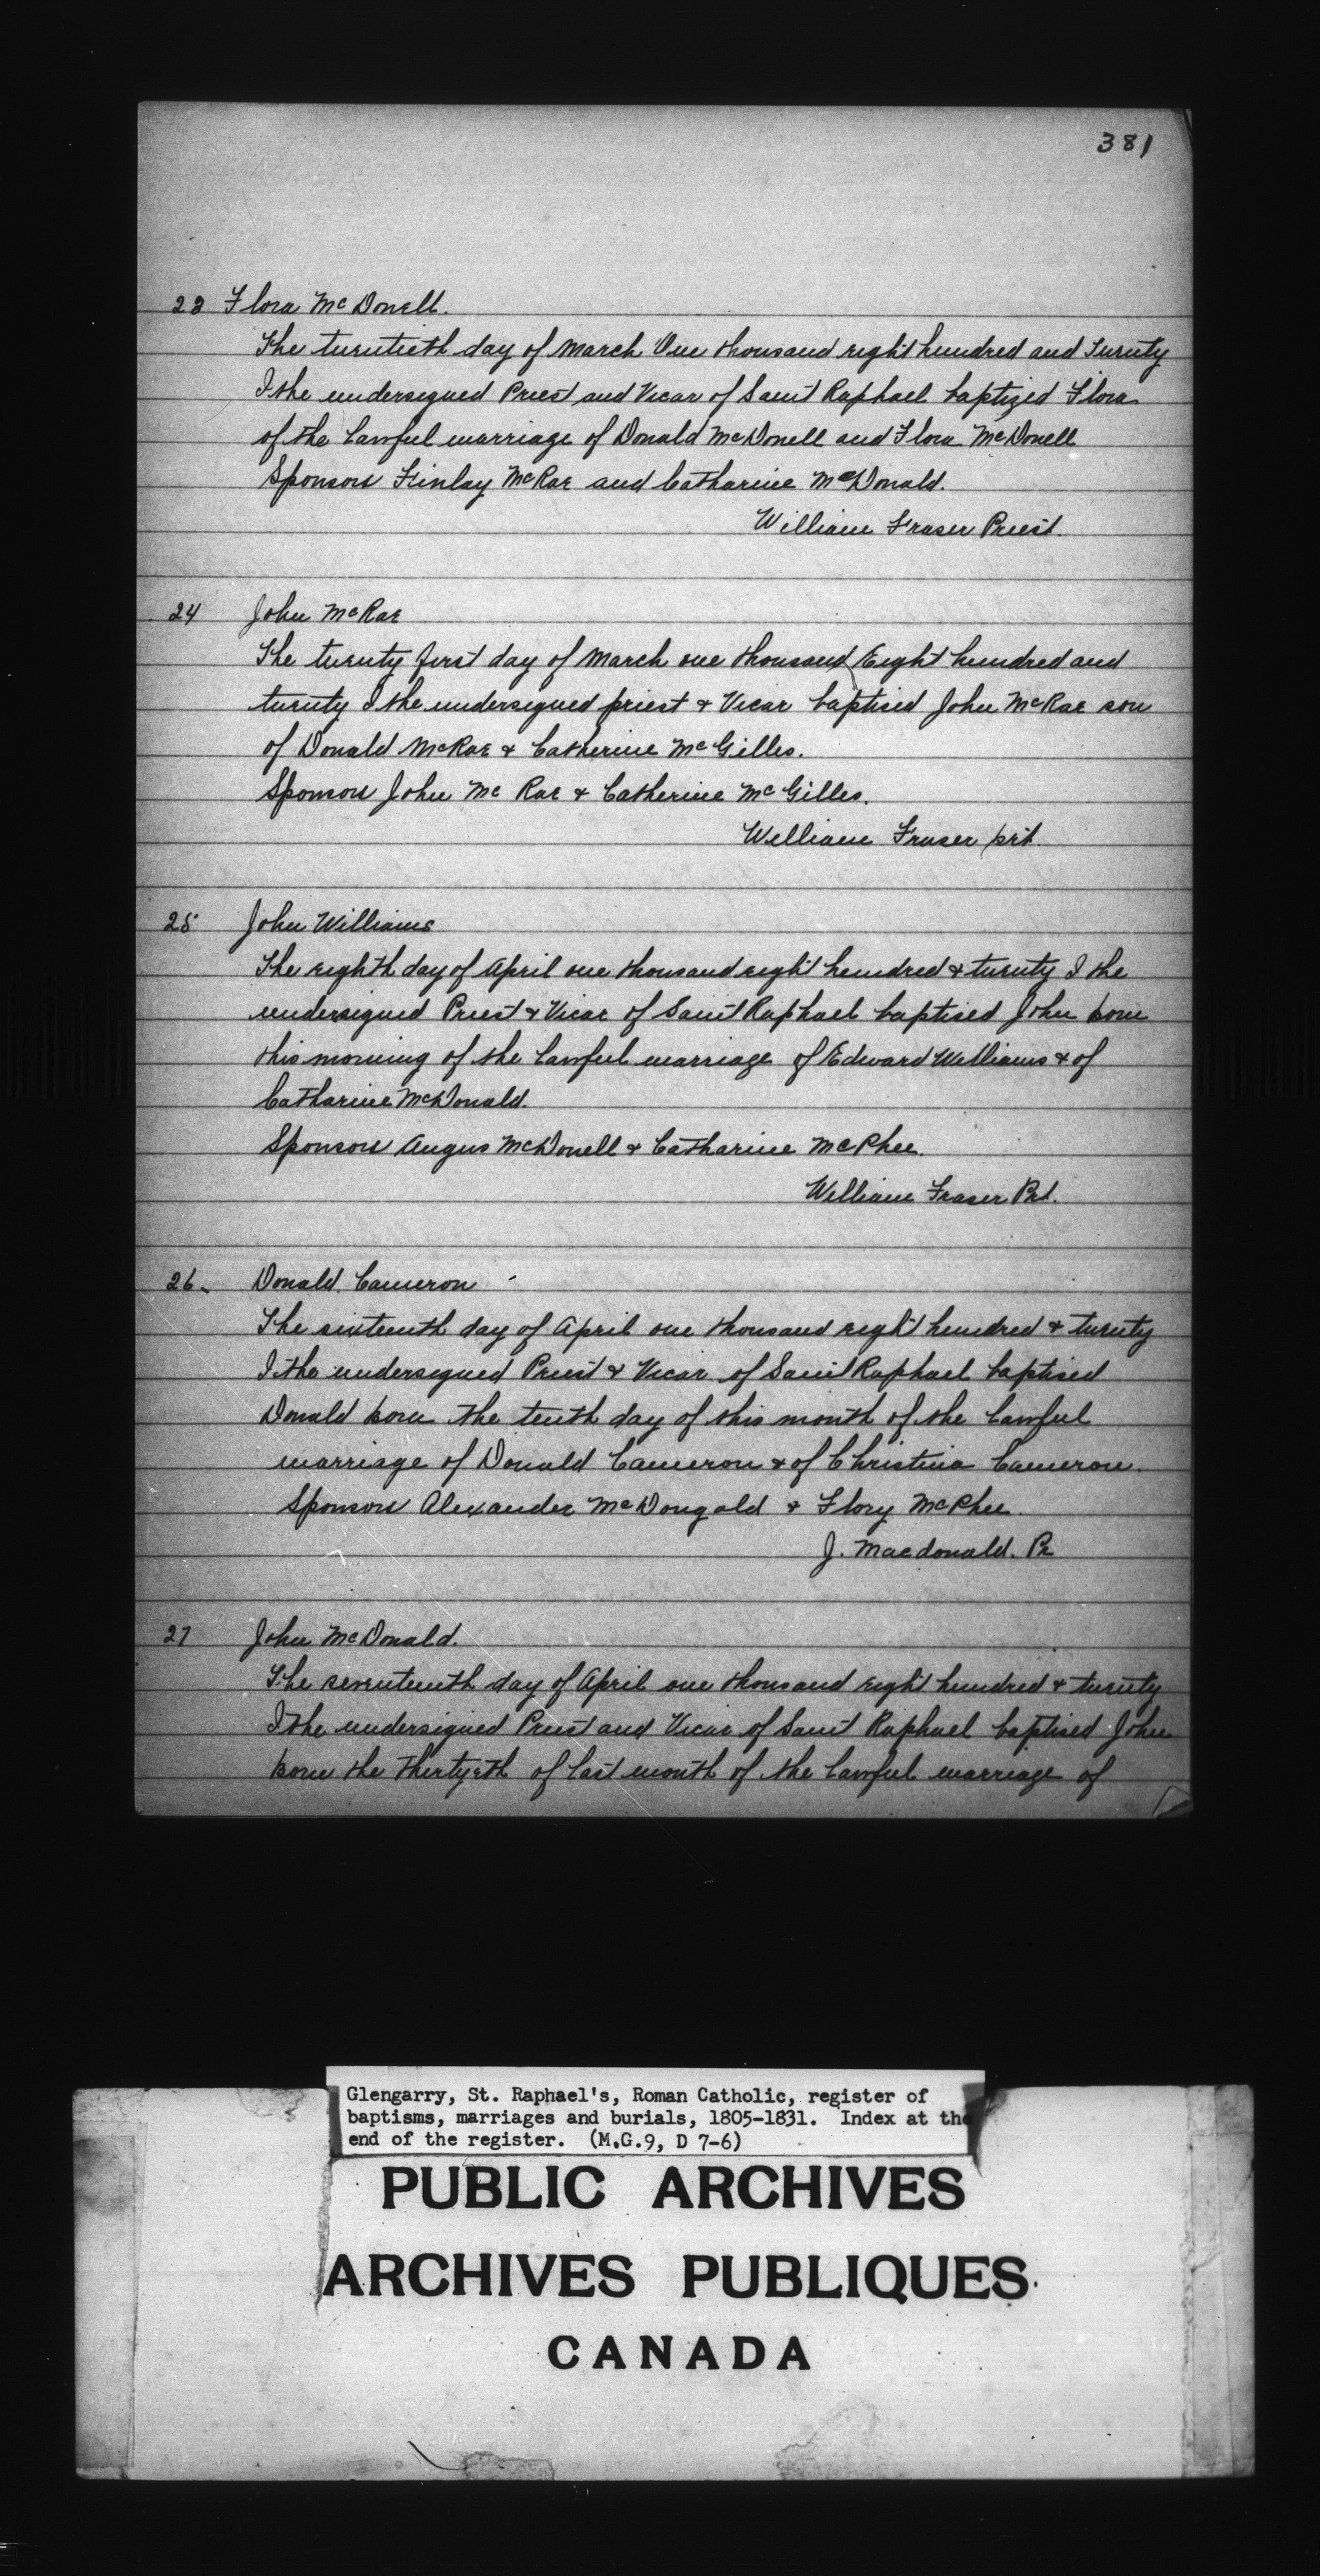 381
23 Flora McDonell.
The twentieth day of March One thousand eight hundred and Twenty
I the undersigned Priest and Vicar of Saint Raphael baptized Flora
of the lawful marriage of Donald McDonell and Flora McDonell
Sponsors Finlay McRae and Catharine McDonald.
William Fraser Priest.
24 John McRae
The twenty first day of March one thousand Eight hundred and
twenty I the undersigned priest & Vicar baptised John McRae son
of Donald McRae & Catherine McGilles.
Sponsors John Mc Rae & Catherine McGilles.
William Fraser prt.
25 John Williams
The eighth day of April one thousand eight hundred & twenty I the
undersigned Priest & Vicar of Saint Raphael baptised John born
this morning of the lawful marriage of Edward Williams & of
Catharine McDonald.
Sponsors Angus McDonell & Catharine McPhee.
William Fraser Prt.
26. Donald Cameron
The sixteenth day of April one thousand eight hundred & twenty
I the undersigned Priest & Vicar of Saint Raphael baptised
Donald born the tenth day of this month of the lawful
marriage of Donald Cameron & of Christina Cameron.
Sponsors Alexander McDougald & Flory McPhee.
J. Macdonald. Pr
27 John McDonald.
The seventeenth day of April one thousand eight hundred & twenty
I the undersigned Priest and Vicar of Saint Raphael baptised John
born the thirtyeth of last month of the lawful marriage of
Glengarry, St. Raphael's, Roman Catholic, register of
baptisms, marriages and burials, 1805-1831. Index at the
end of the register. (M.G.9, D 7-6)
PUBLIC ARCHIVES
ARCHIVES PUBLIQUES
CANADA